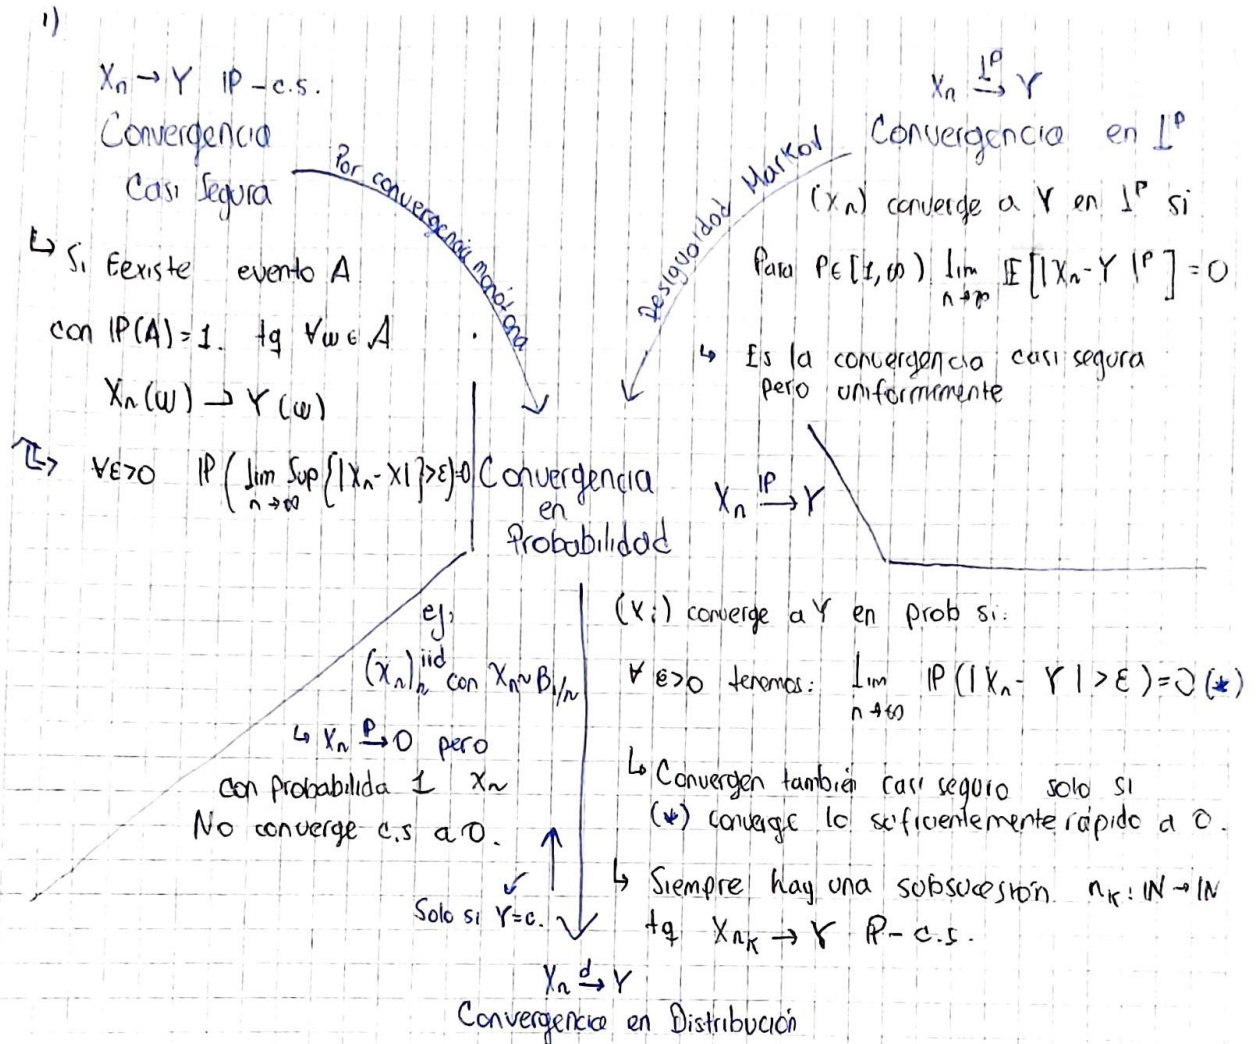 1)
Xn → Y IP-c.s.
Convergencia
Casi Segura
↳ Si Eexiste evento A
con IP(A)=1. tq ∀ω∈A
Xn(ω) → Y(ω)
∀ε>0 IP(lim Sup{|Xn-X|}>ε)=0
n→∞
Por convergencia monótona
Desigualdad Markov
Xn →^{L^P} Y
Convergencia en L^P
(Xn) converge a Y en L^P si
Para P∈[1,∞) lim E[|Xn-Y|^P]=0
n→∞
↳ Es la convergencia casi segura
pero uniformmente
Convergencia
en
Probabilidad
Xn →^{IP} Y
ej,
(Xn)_n^{iid} con Xn~B_{1/n}
↳ Xn →^{P} 0 pero
con probabilida 1 Xn
No converge c.s a 0.
Solo si Y=c.
(Xi) converge a Y en prob si:
∀ ε>0 tenemos: lim IP(|Xn-Y|>ε)=0 (*)
n→∞
↳ Convergen también casi seguro solo si
(*) converge lo suficientemente rápido a 0.
↳ Siempre hay una subsucesión n_K: IN→IN
tq X_{n_K} → Y P-c.s.
Xn →^{d} Y
Convergencia en Distribución